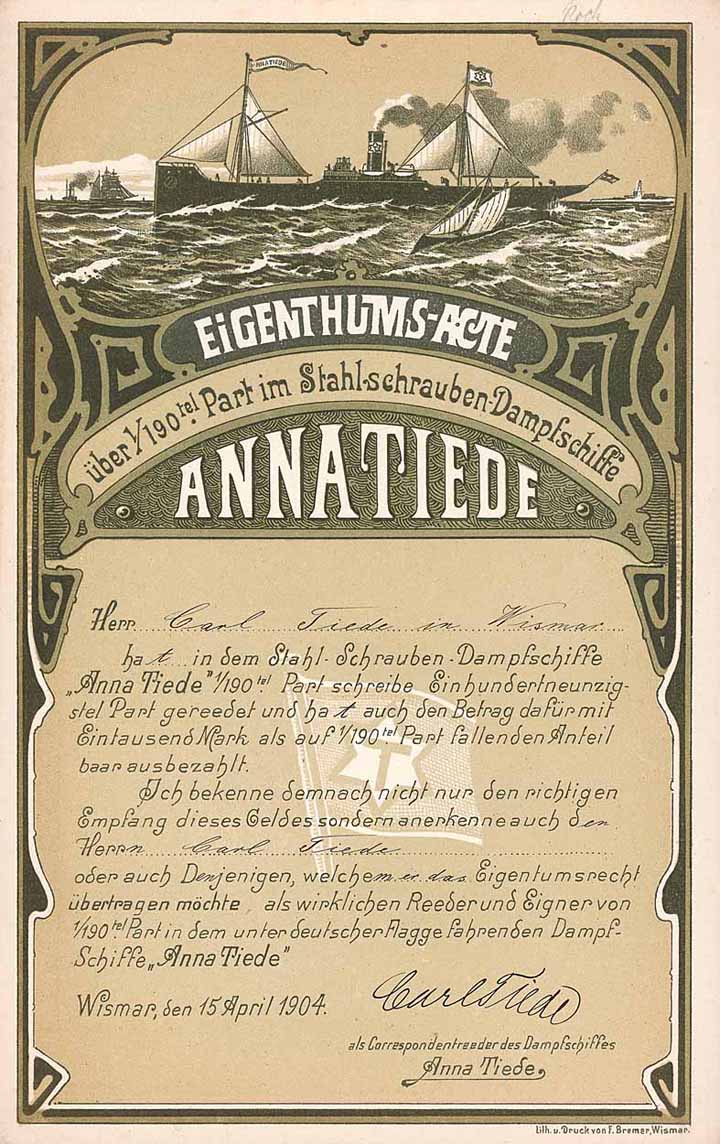 Roch
ANNATIEDE
EiGENTHUMS-ACTE
über 1/190tel Part im Stahl-schrauben-Dampfschiffe
ANNATIEDE
Herr Carl Tiede in Wismar
hat in dem Stahl-Schrauben-Dampfschiffe
„Anna Tiede" 1/190tel Part schreibe Einhundertneunzig-
stel Part gereedet und hat auch den Betrag dafür mit
Eintausend Mark als auf 1/190tel Part fallenden Anteil
baar ausbezahlt.
Ich bekenne demnach nicht nur den richtigen
Empfang dieses Geldes sondern anerkenne auch den
Herrn Carl Tiede
oder auch Denjenigen, welchem er das Eigentumsrecht
übertragen möchte, als wirklichen Reeder und Eigner von
1/190tel Part in dem unter deutscher Flagge fahrenden Dampf-
Schiffe „Anna Tiede"
Wismar, den 15 April 1904.
Carl Tiede
als Correspondentreeder des Dampfschiffes
Anna Tiede
Lith. u. Druck von F. Bremer, Wismar.